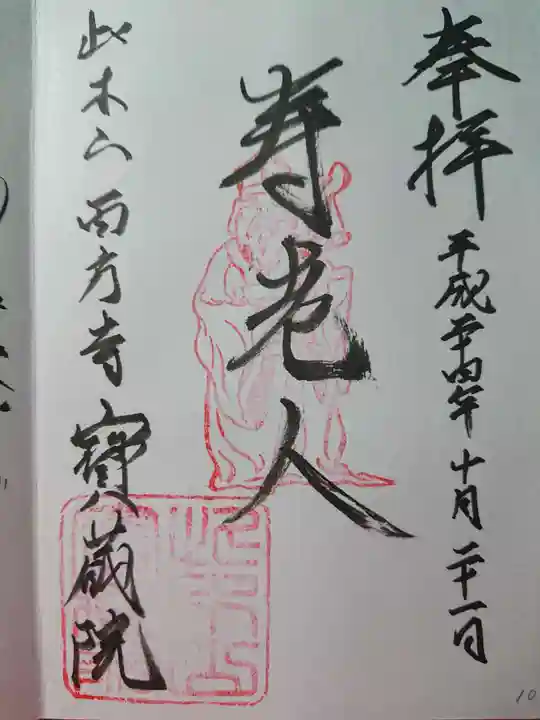 奉拝
平成二十四年十月二十一日
寿老人
此木山西方寺寶蔵院
10